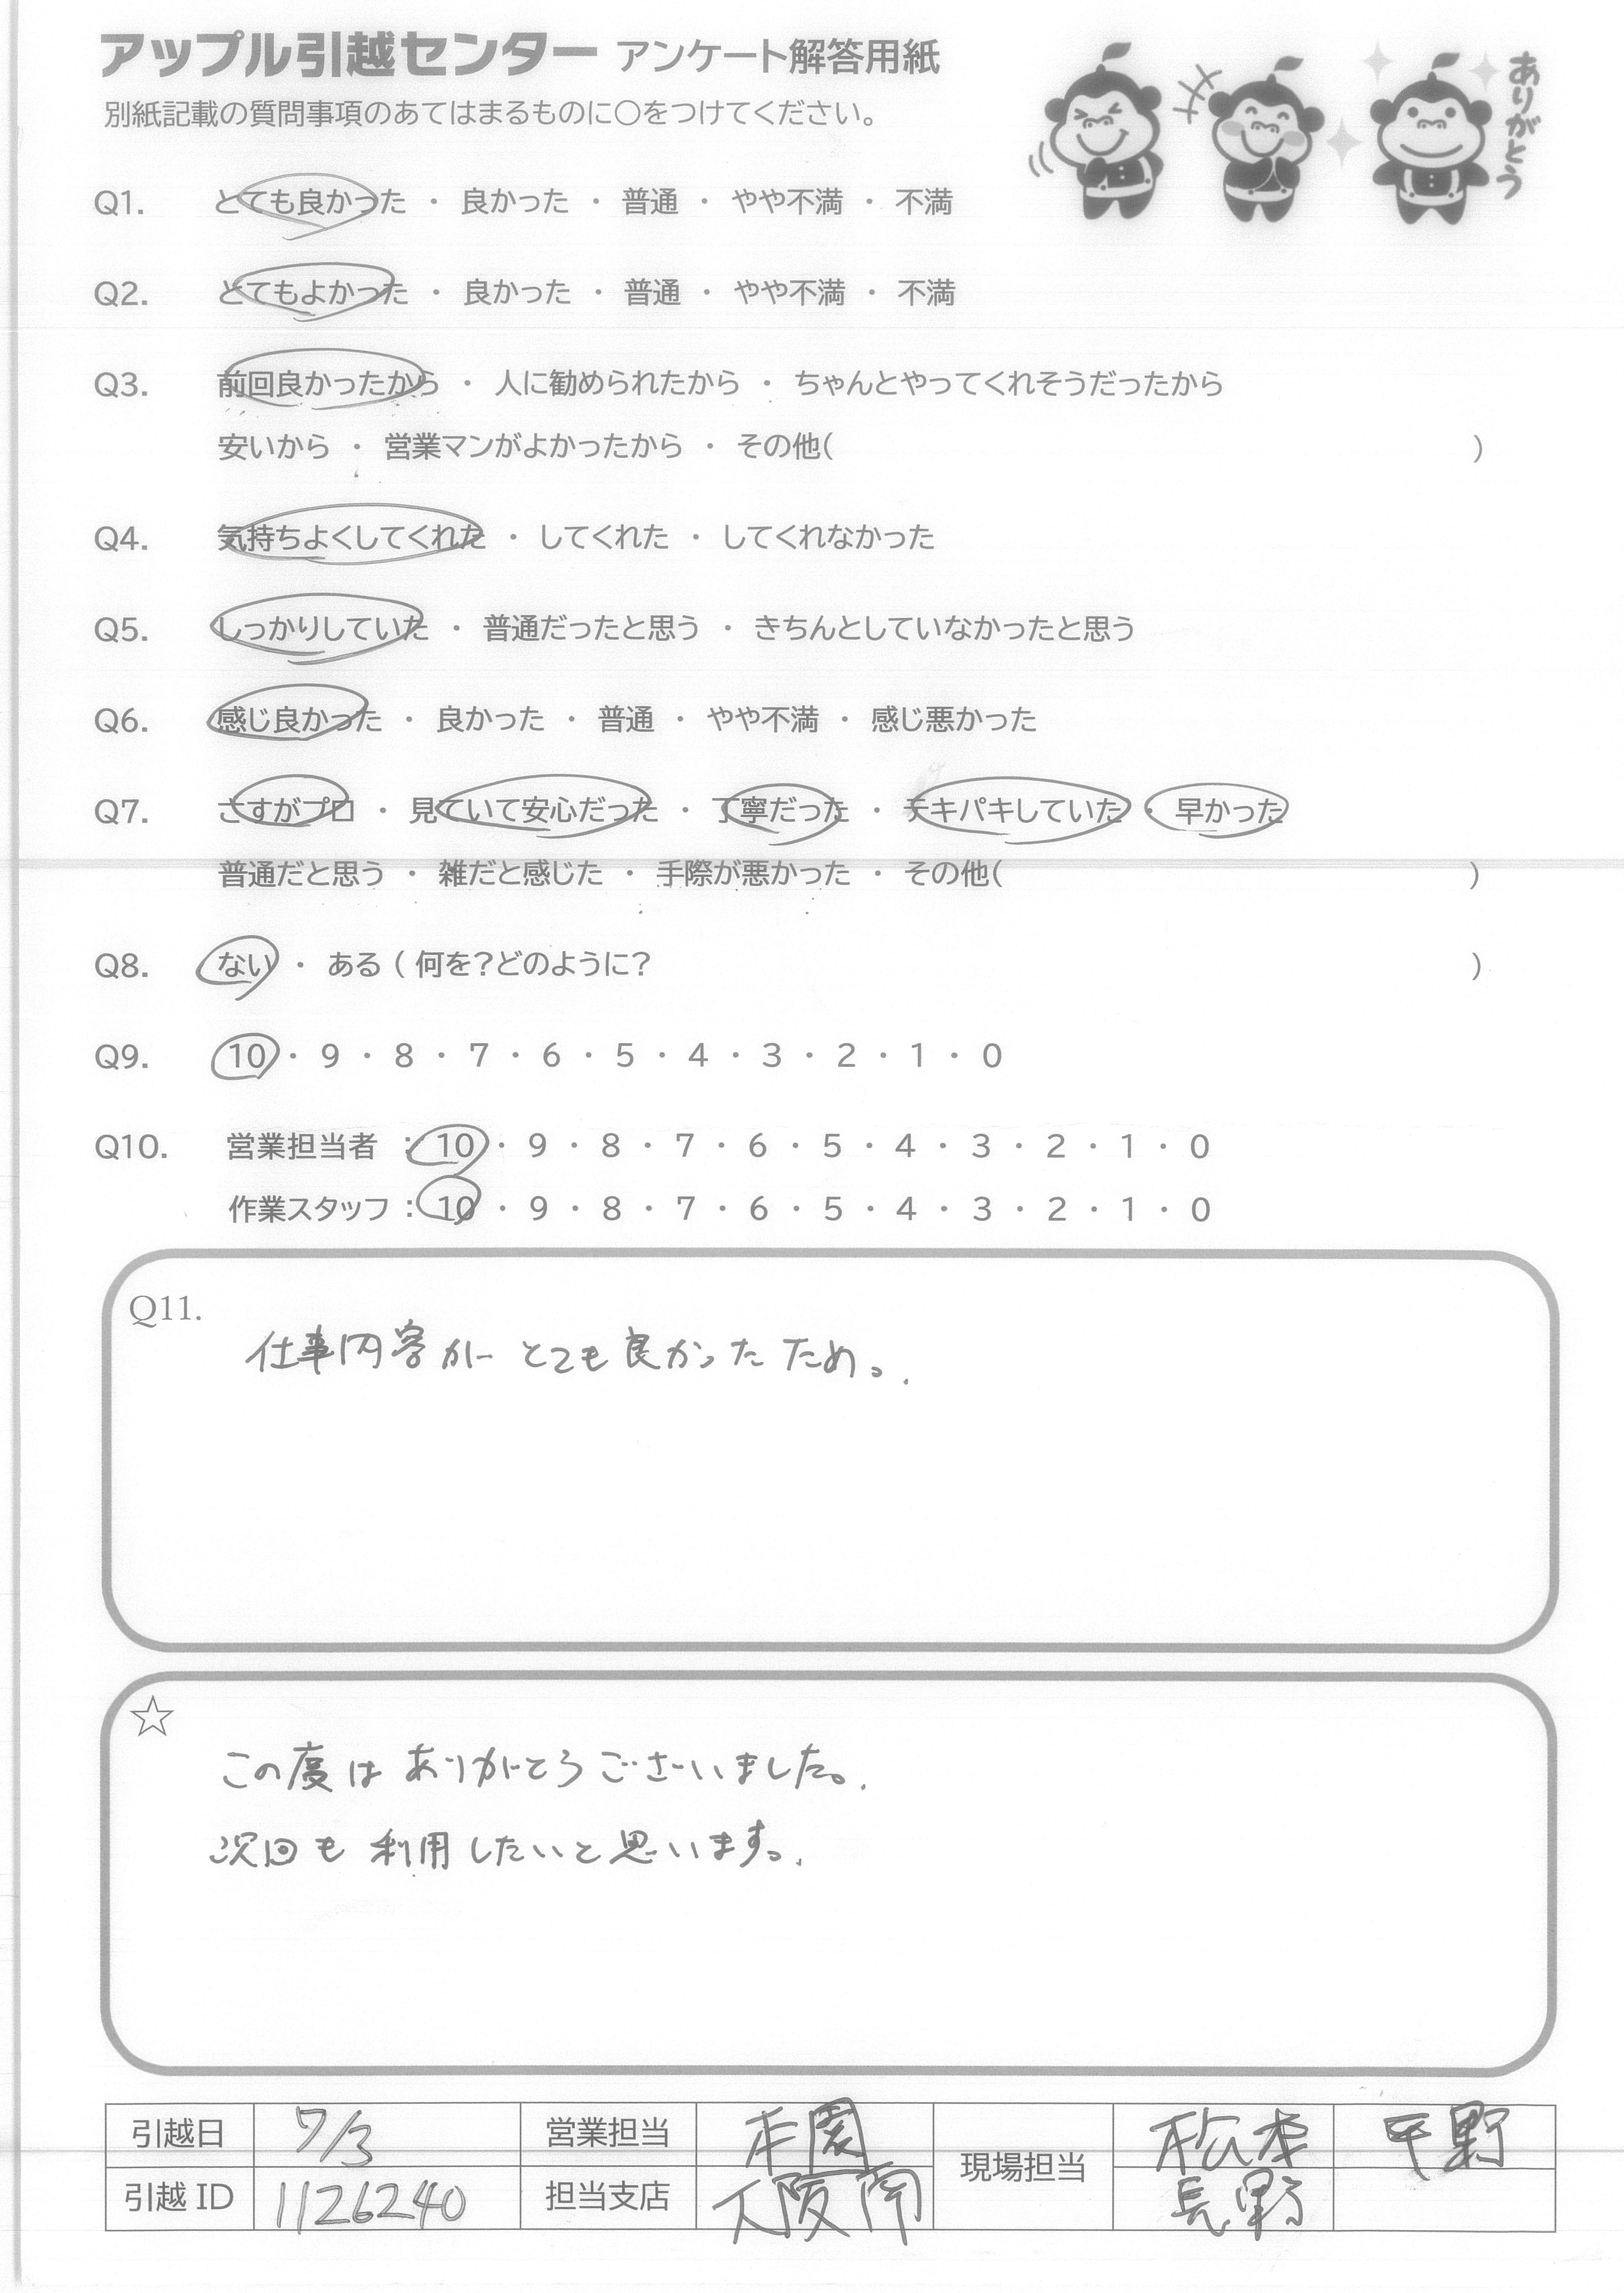 アップル引越センター アンケート解答用紙
ありがとう
別紙記載の質問事項のあてはまるものに○をつけてください。
Q1. とても良かった ・ 良かった ・ 普通 ・ やや不満 ・ 不満
Q2. とてもよかった ・ 良かった ・ 普通 ・ やや不満 ・ 不満
Q3. 前回良かったから ・ 人に勧められたから ・ ちゃんとやってくれそうだったから
安いから ・ 営業マンがよかったから ・ その他( )
Q4. 気持ちよくしてくれた ・ してくれた ・ してくれなかった
Q5. しっかりしていた ・ 普通だったと思う ・ きちんとしていなかったと思う
Q6. 感じ良かった ・ 良かった ・ 普通 ・ やや不満 ・ 感じ悪かった
Q7. さすがプロ ・ 見ていて安心だった ・ 丁寧だった ・ テキパキしていた ・ 早かった
普通だと思う ・ 雑だと感じた ・ 手際が悪かった ・ その他( )
Q8. ない ・ ある ( 何を?どのように? )
Q9. 10 ・ 9 ・ 8 ・ 7 ・ 6 ・ 5 ・ 4 ・ 3 ・ 2 ・ 1 ・ 0
Q10. 営業担当者 : 10 ・ 9 ・ 8 ・ 7 ・ 6 ・ 5 ・ 4 ・ 3 ・ 2 ・ 1 ・ 0
作業スタッフ : 10 ・ 9 ・ 8 ・ 7 ・ 6 ・ 5 ・ 4 ・ 3 ・ 2 ・ 1 ・ 0
Q11.
仕事内容が とても良かったため。
☆
この度は ありがとうございました。
次回も 利用したいと思います。
引越日 7/3 営業担当 本園 現場担当 松本 平野
引越 ID 1126240 担当支店 大阪南 長野